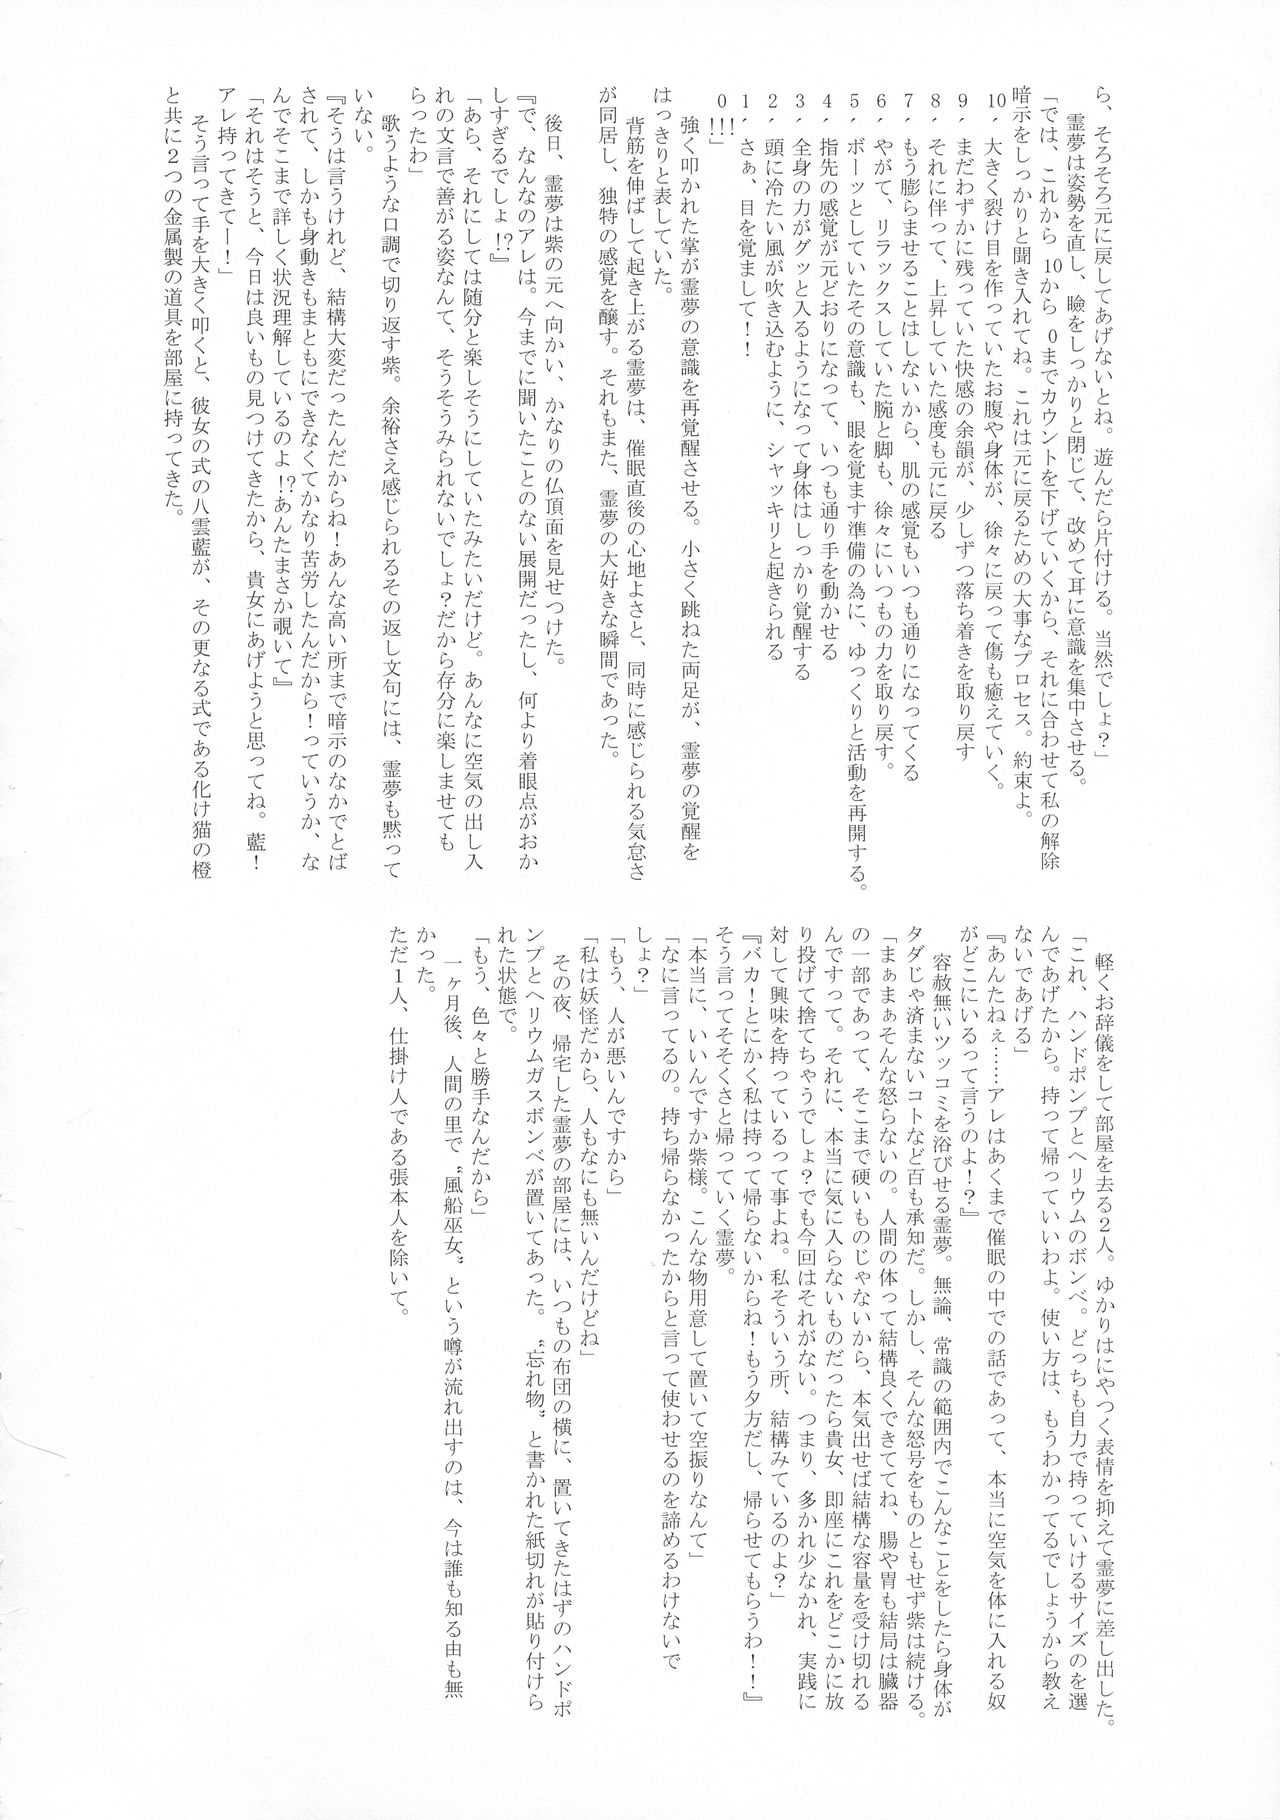 ら、そろそろ元に戻してあげないとね。遊んだら片付ける。当然でしょ？」
　霊夢は姿勢を直し、瞼をしっかりと閉じて、改めて耳に意識を集中させる。
「では、これから 10から 0までカウントを下げていくから、それに合わせて私の解除
暗示をしっかりと聞き入れてね。これは元に戻るための大事なプロセス。約束よ。
10，大きく裂け目を作っていたお腹や身体が、徐々に戻って傷も癒えていく。
9，まだわずかに残っていた快感の余韻が、少しずつ落ち着きを取り戻す
8，それに伴って、上昇していた感度も元に戻る
7，もう膨らませることはしないから、肌の感覚もいつも通りになってくる
6，やがて、リラックスしていた腕と脚も、徐々にいつもの力を取り戻す。
5，ボーッとしていたその意識も、眼を覚ます準備の為に、ゆっくりと活動を再開する。
4，指先の感覚が元どおりになって、いつも通り手を動かせる
3，全身の力がグッと入るようになって身体はしっかり覚醒する
2，頭に冷たい風が吹き込むように、シャッキリと起きられる
1，さぁ、目を覚まして！！
0!!!」
　強く叩かれた掌が霊夢の意識を再覚醒させる。小さく跳ねた両足が、霊夢の覚醒を
はっきりと表していた。
　背筋を伸ばして起き上がる霊夢は、催眠直後の心地よさと、同時に感じられる気怠さ
が同居し、独特の感覚を醸す。それもまた、霊夢の大好きな瞬間であった。
　後日、霊夢は紫の元へ向かい、かなりの仏頂面を見せつけた。
『で、なんなのアレは。今までに聞いたことのない展開だったし、何より着眼点がおか
しすぎるでしょ⁉』
「あら、それにしては随分と楽しそうにしていたみたいだけど。あんなに空気の出し入
れの文言で善がる姿なんて、そうそうみられないでしょ？だから存分に楽しませても
らったわ」
　歌うような口調で切り返す紫。余裕さえ感じられるその返し文句には、霊夢も黙って
いない。
『そうは言うけれど、結構大変だったんだからね！あんな高い所まで暗示のなかでとば
されて、しかも身動きもまともにできなくてかなり苦労したんだから！っていうか、な
んでそこまで詳しく状況理解しているのよ⁉あんたまさか覗いて』
「それはそうと、今日は良いもの見つけてきたから、貴女にあげようと思ってね。藍！
アレ持ってきてー！」
　そう言って手を大きく叩くと、彼女の式の八雲藍が、その更なる式である化け猫の橙
と共に２つの金属製の道具を部屋に持ってきた。
　軽くお辞儀をして部屋を去る２人。ゆかりはにやつく表情を抑えて霊夢に差し出した。
「これ、ハンドポンプとヘリウムのボンベ。どっちも自力で持っていけるサイズのを選
んであげたから。持って帰っていいわよ。使い方は、もうわかってるでしょうから教え
ないであげる」
『あんたねぇ……アレはあくまで催眠の中での話であって、本当に空気を体に入れる奴
がどこにいるって言うのよ！？』
　容赦無いツッコミを浴びせる霊夢。無論、常識の範囲内でこんなことをしたら身体が
タダじゃ済まないコトなど百も承知だ。しかし、そんな怒号をものともせず紫は続ける。
「まぁまぁそんな怒らないの。人間の体って結構良くできててね、腸や胃も結局は臓器
の一部であって、そこまで硬いものじゃないから、本気出せば結構な容量を受け切れる
んですって。それに、本当に気に入らないものだったら貴女、即座にこれをどこかに放
り投げて捨てちゃうでしょ？でも今回はそれがない。つまり、多かれ少なかれ、実践に
対して興味を持っているって事よね。私そういう所、結構みているのよ？」
『バカ！とにかく私は持って帰らないからね！もう夕方だし、帰らせてもらうわ！！』
そう言ってそそくさと帰っていく霊夢。
「本当に、いいんですか紫様。こんな物用意して置いて空振りなんて」
「なに言ってるの。持ち帰らなかったからと言って使わせるのを諦めるわけないで
しょ？」
「もう、人が悪いんですから」
「私は妖怪だから、人もなにも無いんだけどね」
　その夜、帰宅した霊夢の部屋には、いつもの布団の横に、置いてきたはずのハンドポ
ンプとヘリウムガスボンベが置いてあった。〝忘れ物〟と書かれた紙切れが貼り付けら
れた状態で。
「もう、色々と勝手なんだから」
　一ヶ月後、人間の里で〝風船巫女〟という噂が流れ出すのは、今は誰も知る由も無
かった。
ただ１人、仕掛け人である張本人を除いて。